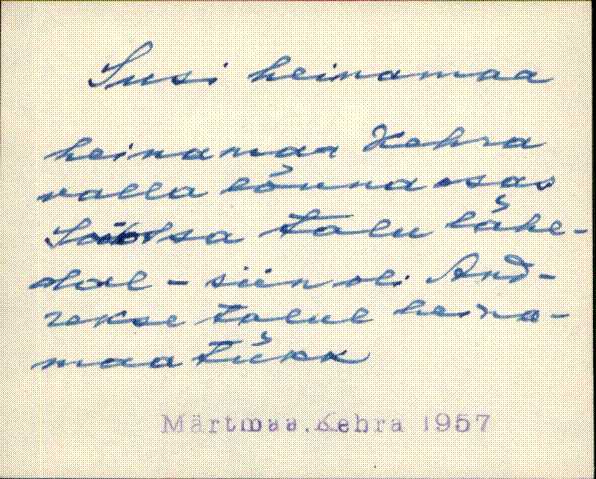 Susi heinamaa
heinamaa Kehra
valla lõuna osas
talu lähe-
dal - siin oli And-
rekse talul heina-
maa tükk
Märtmaa, Kehra 1957